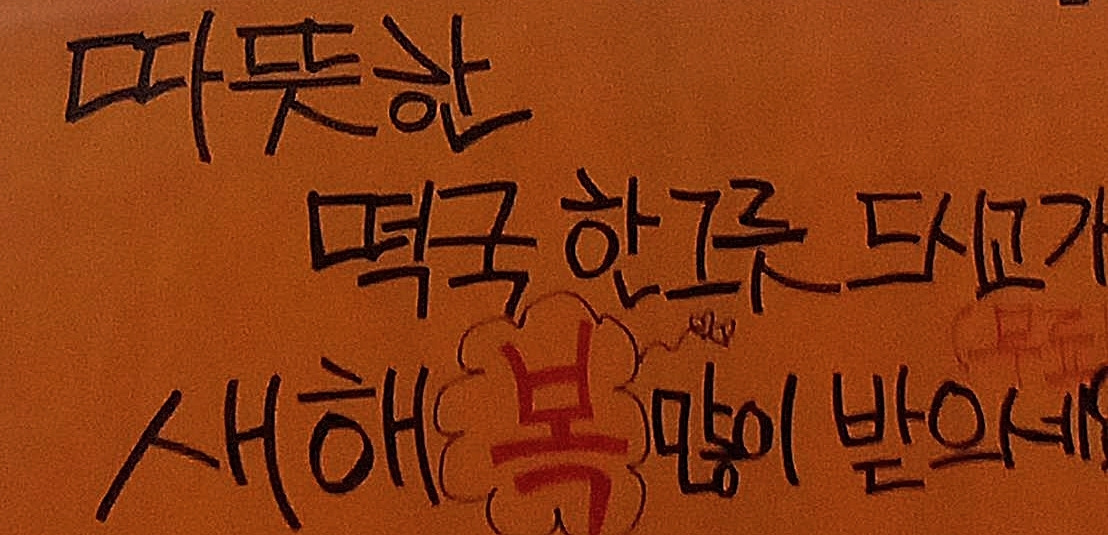 따뜻한
떡국 한그릇 드시고가
새해 복 많이 받으세